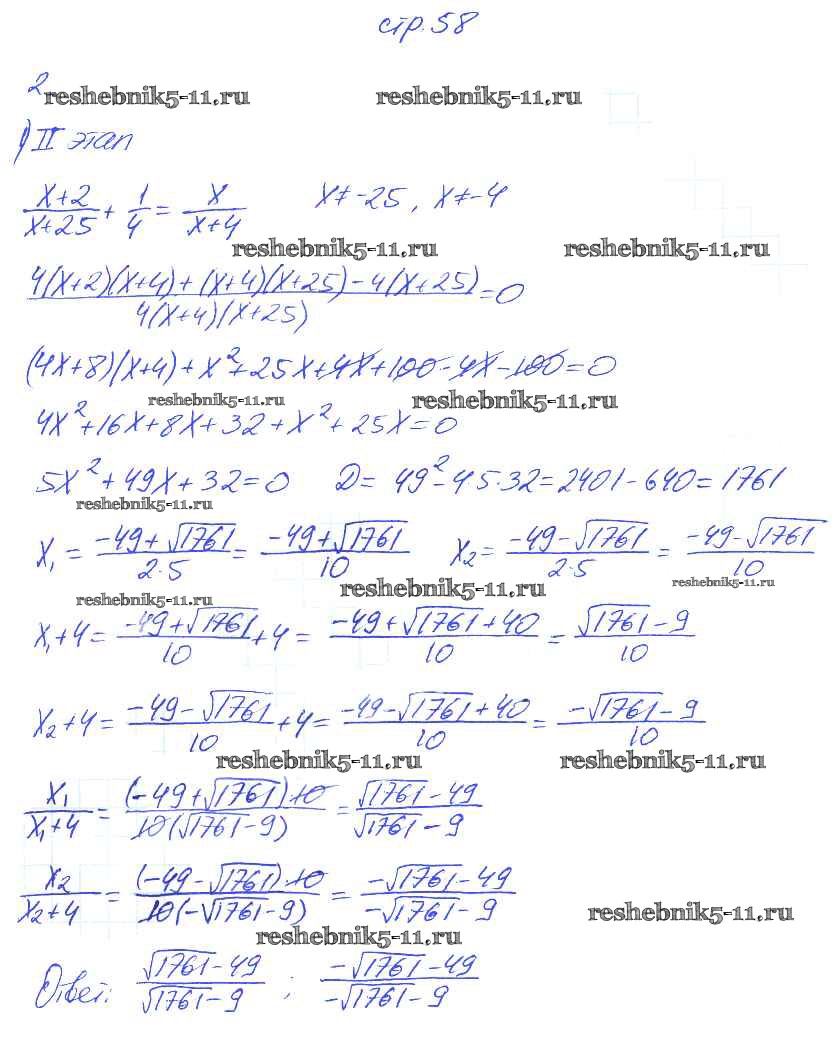 стр. 58
2
reshebnik5-11.ru reshebnik5-11.ru
1) II этап
(x+2)/(x+25) + 1/4 = x/(x+4) x ≠ -25, x ≠ -4
reshebnik5-11.ru reshebnik5-11.ru
(4(x+2)(x+4)+(x+4)(x+25)-4(x+25))/(4(x+4)(x+25)) = 0
(4x+8)(x+4)+x²+25x+4x+100-4x-100=0
reshebnik5-11.ru reshebnik5-11.ru
4x²+16x+8x+32+x²+25x=0
5x²+49x+32=0 D= 49²-4·5·32=2401-640=1761
reshebnik5-11.ru
x₁ = (-49+√1761)/(2·5) = (-49+√1761)/10 x₂ = (-49-√1761)/(2·5) = (-49-√1761)/10
reshebnik5-11.ru reshebnik5-11.ru reshebnik5-11.ru
x₁+4 = (-49+√1761)/10 + 4 = (-49+√1761+40)/10 = (√1761-9)/10
x₂+4 = (-49-√1761)/10 + 4 = (-49-√1761+40)/10 = (-√1761-9)/10
reshebnik5-11.ru reshebnik5-11.ru
x₁/(x₁+4) = ((-49+√1761)·10)/(10(√1761-9)) = (√1761-49)/(√1761-9)
x₂/(x₂+4) = ((-49-√1761)·10)/(10(-√1761-9)) = (-√1761-49)/(-√1761-9)
reshebnik5-11.ru reshebnik5-11.ru
Ответ: (√1761-49)/(√1761-9) ; (-√1761-49)/(-√1761-9)